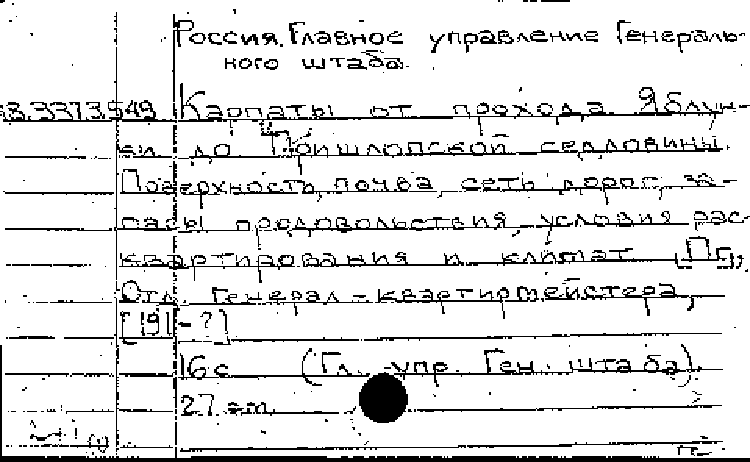 Россия. Главное управление Генераль-
ного штаба.
Карпаты от прохода Яблун-
ки до Пришлопской седловины.
Поверхность, почва, сеть дорог, за-
пасы продовольствия, условия рас-
квартирования и климат. [Пг,
Отд. Генерал-квартирмейстера,
[191-?]
16 с (Гл. упр. Ген. штаба).
27 см.